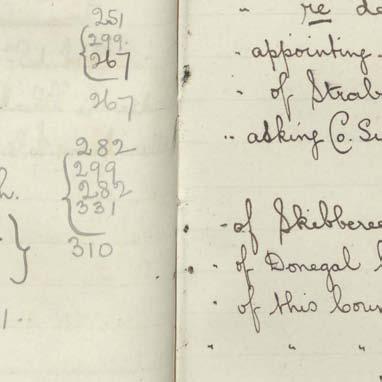 251
{299.
267
267
282
{299
282
h.
331
}
310
1.
" re de
" appointing
" of Strab
" asking Co. Su
" of Skibberee
" of Donegal
" of this Coun
" " "